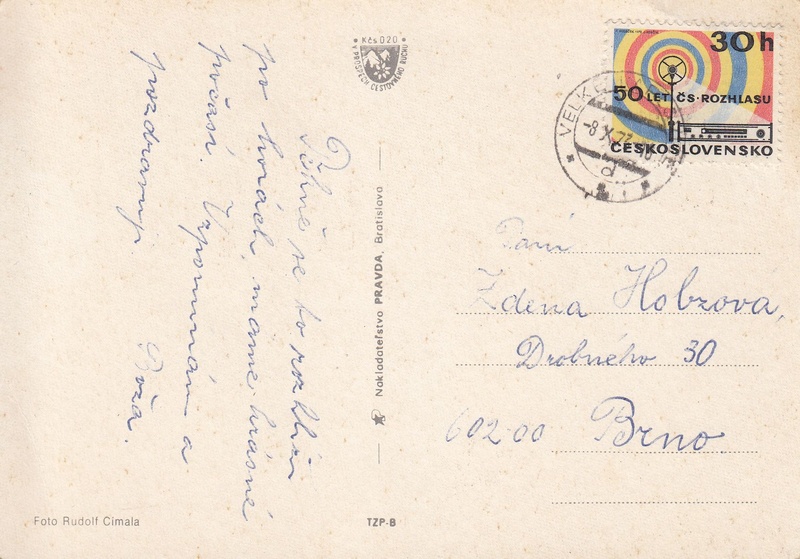 Kčs 0,20
V PROSPĚCH CESTOVNÉHO RUCHU
30h
50 LET ČS·ROZHLASU
ČESKOSLOVENSKO
VELKÉ
-8.X.73
a
Pěkně se to rozhlíží
po horách, máme krásné
počasí. Vzpomínám a
pozdravuji
Boža.
Nakladateľstvo PRAVDA, Bratislava
Paní
Zdena Hobzova,
Drobného 30
602 00 Brno
Foto Rudolf Cimala
TZP-B